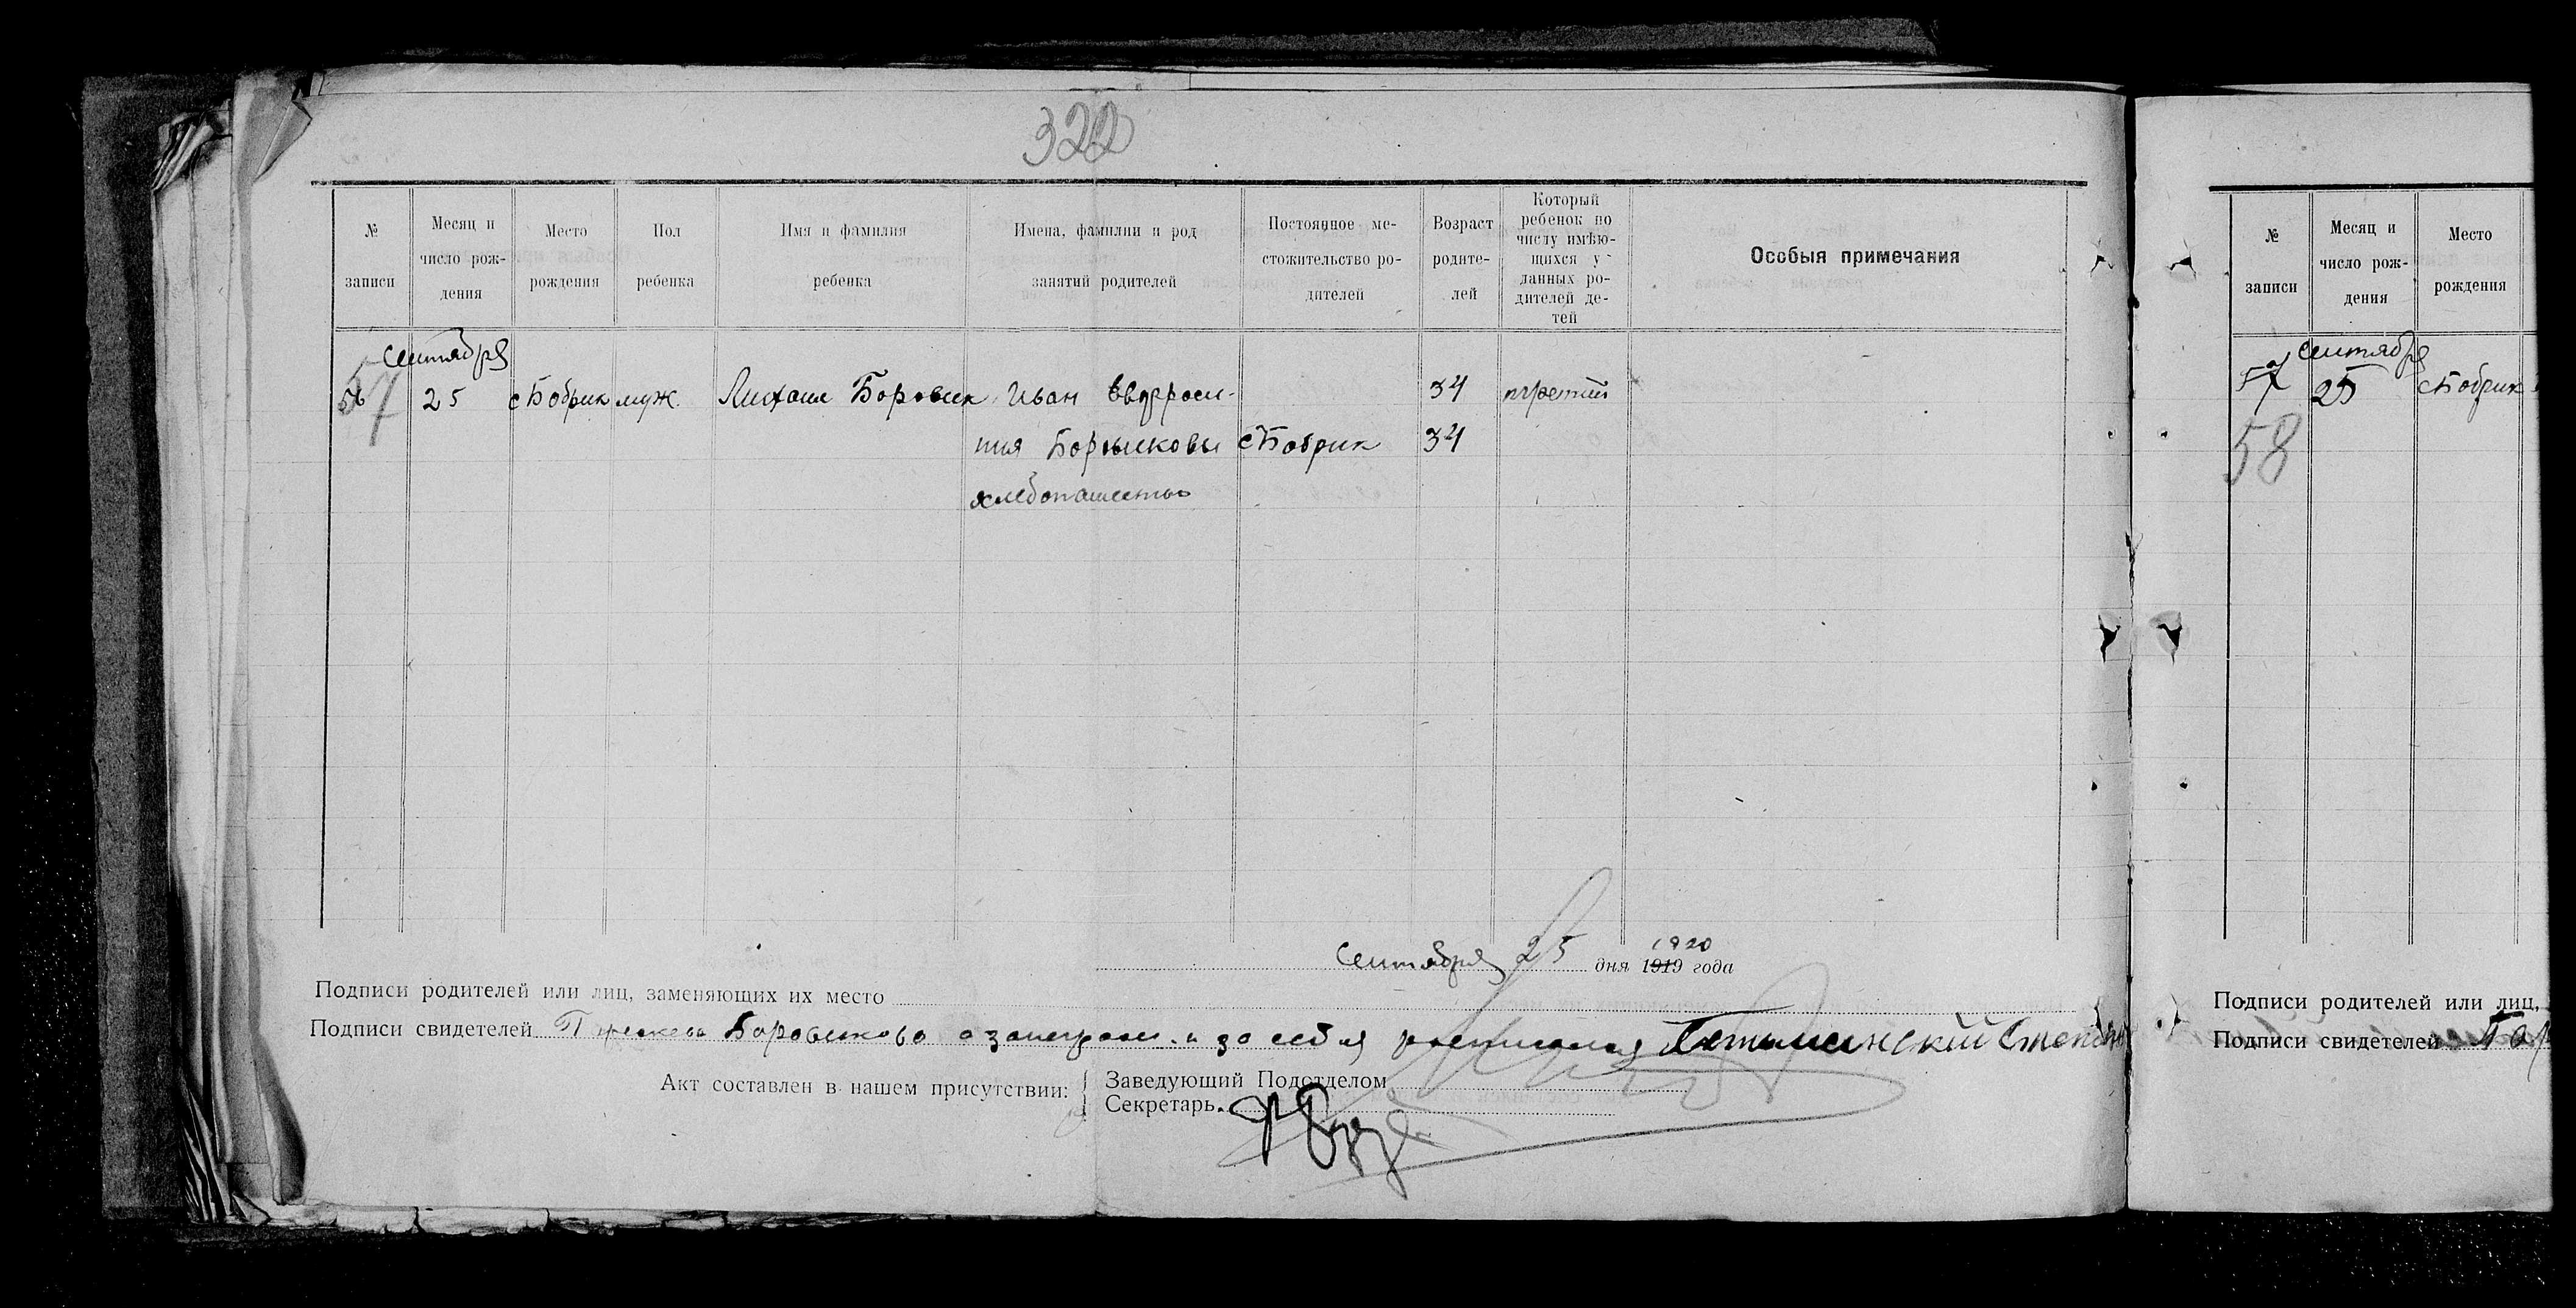 322
№ записи
Месяц и число рож-дения
Место рождения
Пол ребенка
Имя и фамилия ребенка
Имена, фамилии и род занятий родителей
Постоянное ме-стожительство ро-дителей
Возраст родите-лей
Который ребенок по числу имѣю-щихся у данных ро-дителей де-тей
Особыя примечания
Сентября
56 57 25 с Бобрик муж. Михаил Боровик Иван Евфроси- 34 третий
ния Боровиковы с Бобрик 34
хлебопашество
Сентября 25 дня 1919 года
1920
Подписи родителей или лиц, заменяющих их место
Подписи свидетелей Боровикова а за неграм. и за себя росписался
Акт составлен в нашем присутствии:
Заведующий Подотделом
Секретарь
№ записи
Месяц и число рож-дения
Место рождения
Сентября
57 25 с Бобрик
58
Подписи родителей или лиц,
Подписи свидетелей